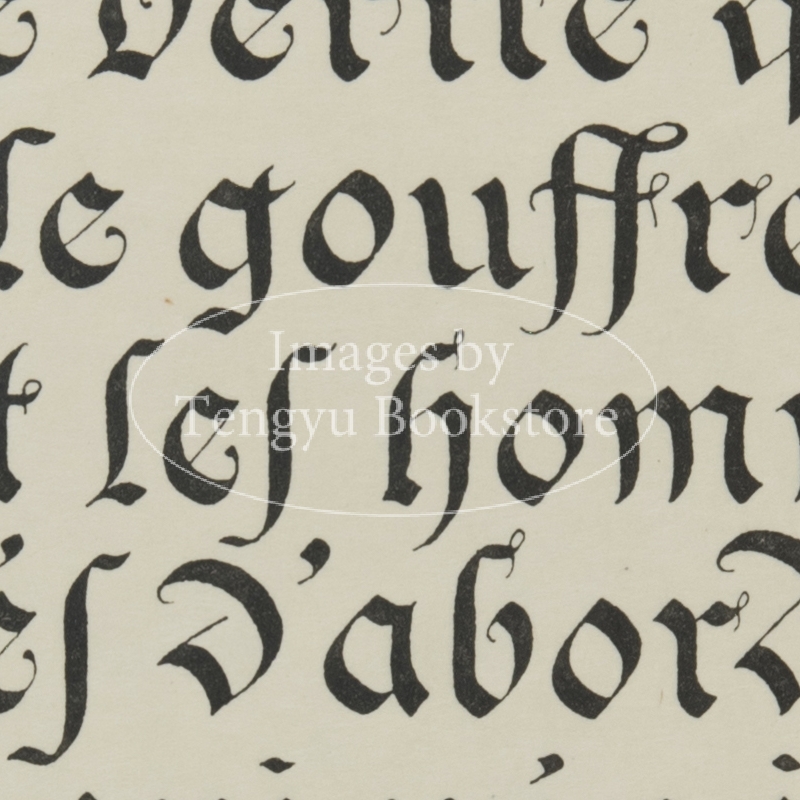 le gouffre
les hom
d'abord
Images by
Tengyu Bookstore